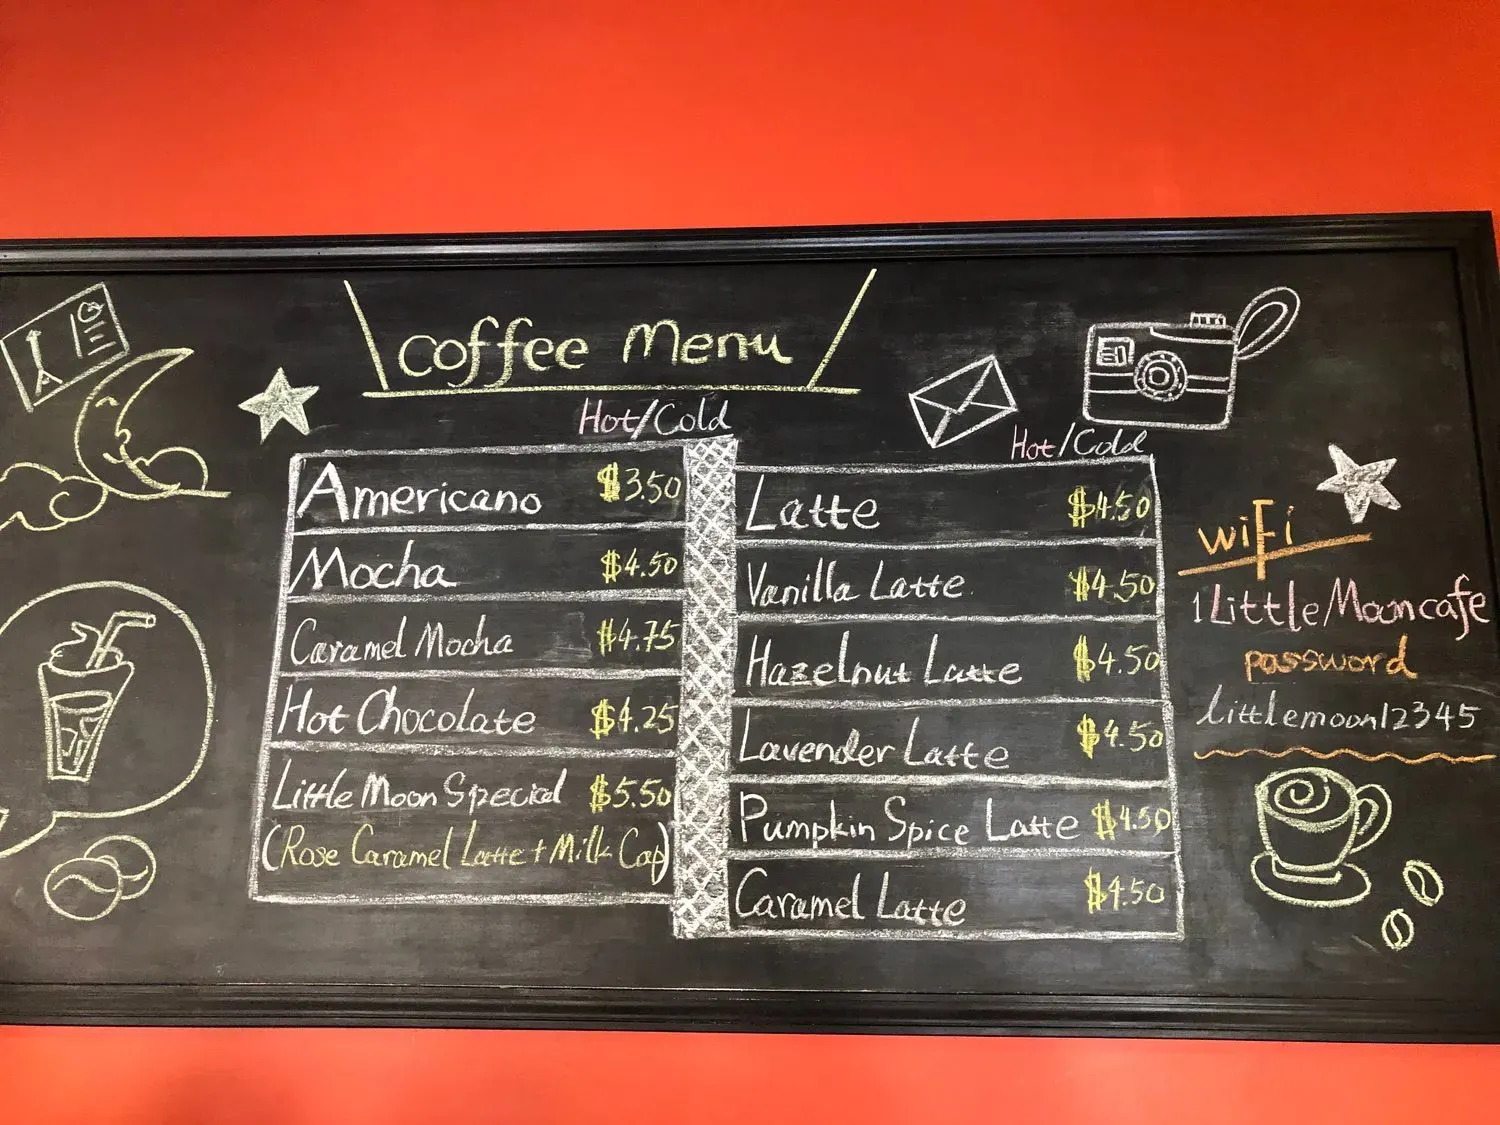 Coffee Menu
Hot/Cold
Americano $3.50
Mocha $4.50
Caramel Mocha $4.75
Hot Chocolate $4.25
Little Moon Special $5.50
(Rose Caramel Latte + Milk Cap)
Hot/Cold
Latte $4.50
Vanilla Latte $4.50
Hazelnut Latte $4.50
Lavender Latte $4.50
Pumpkin Spice Latte $4.50
Caramel Latte $4.50
wiFi
1LittleMooncafe
password
littlemoon12345